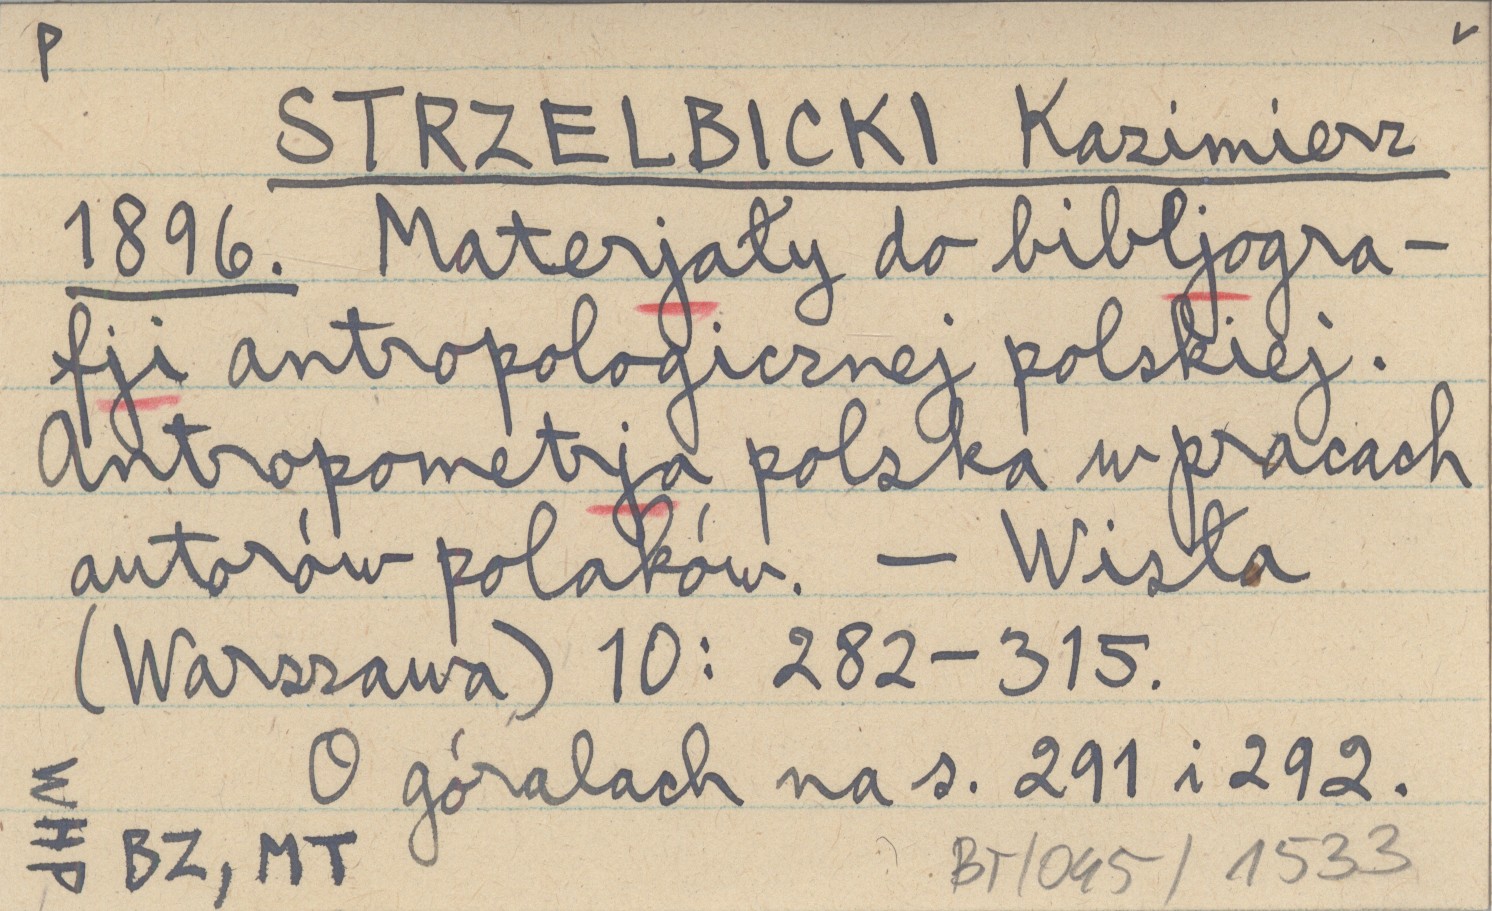 P
STRZELBICKI Kazimierz
1896. Materjały do bibljogra-
fji antropologicznej polskiej.
Antropometrja polska w pracach
autorów polaków. — Wisła
(Warszawa) 10: 282-315.
O góralach na s. 291 i 292.
WHP
BZ, MT
BT/045/1533